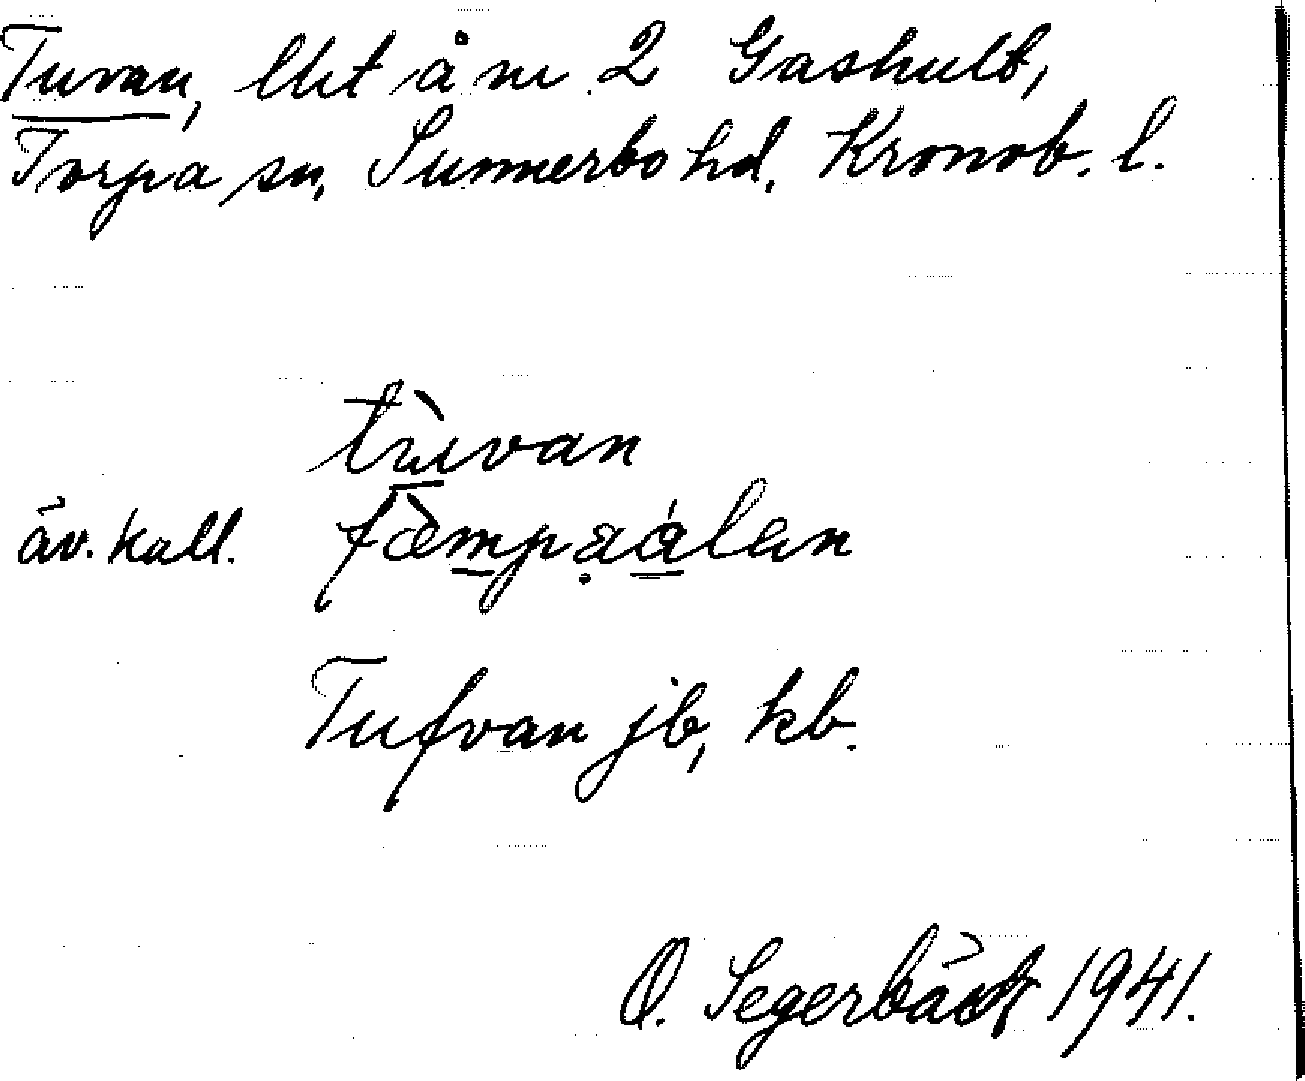 Tuvan, lht å nr 2 Gashult,
Torpa sn, Sunnerbo hd, Kronob. l.
tùvan
äv. kall. fæ̀mpaálan
Tufvan jb, kb.
O. Segerbäck 1941.